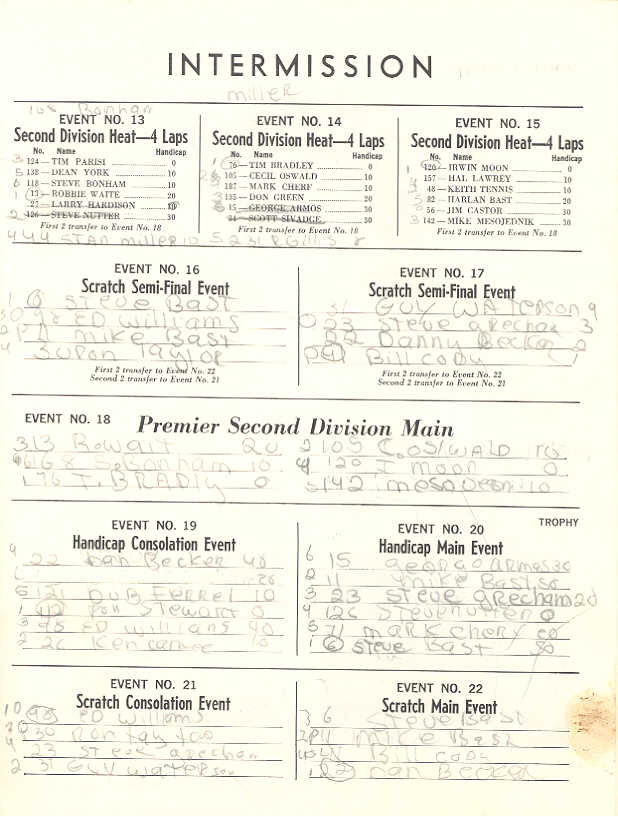 INTERMISSION
miller
108 Bonham
EVENT NO. 13
Second Division Heat—4 Laps
No. Name Handicap
3 124—TIM PARISI 0
5 138—DEAN YORK 10
6 118—STEVE BONHAM 10
1 13—ROBBIE WAITE 20
27—LARRY HARDISON 10
2 126—STEVE NUTTER 30
First 2 transfer to Event No. 18
4 44 STAN miller 10
EVENT NO. 14
Second Division Heat—4 Laps
No. Name Handicap
1 76—TIM BRADLEY 0
2 105—CECIL OSWALD 10
187—MARK CHERF 10
135—DON GREEN 20
15—GEORGE ARMOS 30
34—SCOTT SIVADGE 30
First 2 transfer to Event No. 18
5 231
EVENT NO. 15
Second Division Heat—4 Laps
No. Name Handicap
1 120—IRWIN MOON 0
157—HAL LAWREY 10
4 48—KEITH TENNIS 10
5 82—HARLAN BAST 20
2 56—JIM CASTOR 30
3 142—MIKE MESOJEDNIK 30
First 2 transfer to Event No. 18
EVENT NO. 16
Scratch Semi-Final Event
1 6 STEVE BAST
3 98 ED Williams
2 mike Bast
4 30 Ron Taylor
First 2 transfer to Event No. 22
Second 2 transfer to Event No. 21
EVENT NO. 17
Scratch Semi-Final Event
31 GUY WATERSON
23 Steve grecham 3
22 Danny Becker 2
Bill cody 1
First 2 transfer to Event No. 22
Second 2 transfer to Event No. 21
EVENT NO. 18 Premier Second Division Main
3 13 R. wait 20
S. Bonham 10
1 76 T. BRADLY 0
2 105 C. OSWALD 10
4 120 I moon 0
5 142 10
EVENT NO. 19
Handicap Consolation Event
4 22 Dan Becker 40
20
5 121 DUB FERREL 10
1 Ron Stewart 0
3 98 ED Williams 40
2 26 Ken 10
TROPHY
EVENT NO. 20
Handicap Main Event
6 15 george armes 30
2 11 mike Bast 50
3 23 Steve grecham 20
4 126 Steve nutter 0
5 71 mark chery
1 6 Steve Bast 50
EVENT NO. 21
Scratch Consolation Event
1 98 ED Williams
3 30 Ron taylor
4 23 Steve grecham
2 31 GUY WATERSON
EVENT NO. 22
Scratch Main Event
3 6 Steve Bast
2 P11 mike Bast
4 Bill cody
1 22 Dan Becker